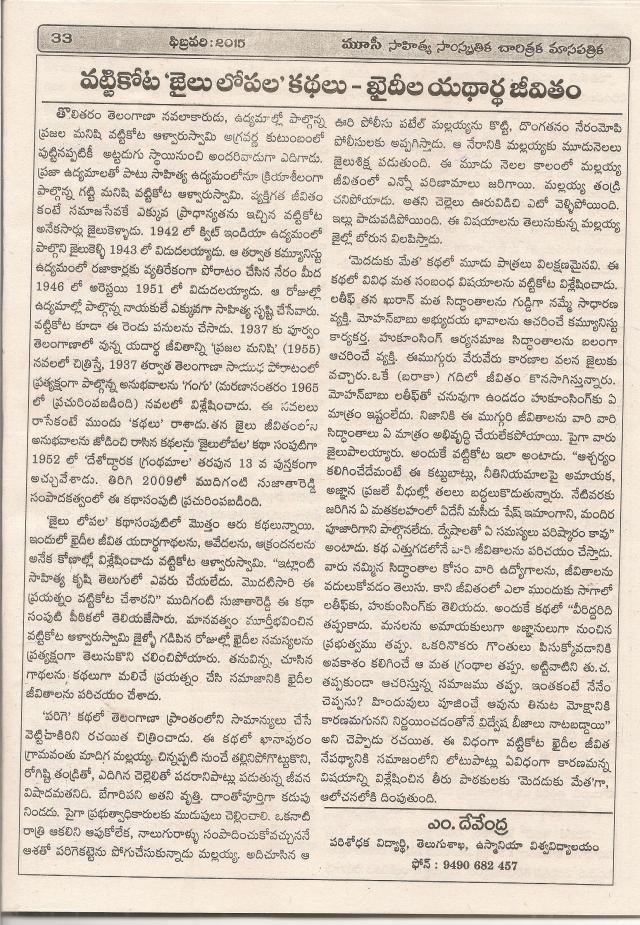 33
ఫిబ్రవరి: 2015
మూసీ సాహిత్య సాంస్కృతిక చారిత్రక మాసపత్రిక
వట్టికోట ‘జైలు లోపల’ కథలు - ఖైదీల యథార్థ జీవితం
తొలితరం తెలంగాణా నవలాకారుడు, ఉద్యమాల్లో పాల్గొన్న
ప్రజల మనిషి వట్టికోట ఆళ్వారుస్వామి అగ్రవర్ణ కుటుంబంలో
పుట్టినప్పటికీ అట్టడుగు స్థాయినుంచి అందరివాడుగా ఎదిగాడు.
ప్రజా ఉద్యమాలతో పాటు సాహిత్య ఉద్యమంలోనూ క్రియాశీలంగా
పాల్గొన్న గట్టి మనిషి వట్టికోట ఆళ్వారుస్వామి. వ్యక్తిగత జీవితం
కంటే సమాజసేవకే ఎక్కువ ప్రాధాన్యతను ఇచ్చిన వట్టికోట
అనేకసార్లు జైలుకెళ్ళాడు. 1942 లో క్విట్ ఇండియా ఉద్యమంలో
పాల్గొని జైలుకెళ్ళి 1943 లో విడుదలయ్యాడు. ఆ తర్వాత కమ్యూనిస్టు
ఉద్యమంలో రజాకార్లకు వ్యతిరేకంగా పోరాటం చేసిన నేరం మీద
1946 లో అరెస్టయి 1951 లో విడుదలయ్యాడు. ఆ రోజుల్లో
ఉద్యమాల్లో పాల్గొన్న నాయకులే ఎక్కువగా సాహిత్య సృష్టి చేసేవారు.
వట్టికోట కూడా ఈ రెండు పనులను చేసాడు. 1937 కు పూర్వం
తెలంగాణాలో వున్న యదార్థ జీవితాన్ని ‘ప్రజల మనిషి’ (1955)
నవలలో చిత్రిస్తే, 1937 తర్వాత తెలంగాణా సాయుధ పోరాటంలో
ప్రత్యక్షంగా పాల్గొన్న అనుభవాలను ‘గంగు’ (మరణానంతరం 1965
లో ప్రచురింపబడింది) నవలలో విశ్లేషించాడు. ఈ నవలలు
రాసేకంటే ముందు ‘కథలు’ రాశాడు.తన జైలు జీవితంలోని
అనుభవాలను జోడించి రాసిన కథలను ‘జైలులోపల’ కథా సంపుటిగా
1952 లో ‘దేశోద్ధారక గ్రంథమాల’ తరపున 13 వ పుస్తకంగా
అచ్చువేశాడు. తిరిగి 2009లో ముదిగంటి సుజాతారెడ్డి
సంపాదకత్వంలో ఈ కథాసంపుటి ప్రచురింపబడింది.
‘జైలు లోపల’ కథాసంపుటిలో మొత్తం ఆరు కథలున్నాయి.
ఇందులో ఖైదీల జీవిత యదార్థగాథలను, ఆవేదలను, ఆక్రందనలను
అనేక కోణాల్లో విశ్లేషించాడు వట్టికోట ఆళ్వారుస్వామి. “ఇట్లాంటి
సాహిత్య కృషి తెలుగులో ఎవరు చేయలేదు. మొదటిసారి ఈ
ప్రయత్నం వట్టికోట చేశారని” ముదిగంటి సుజాతారెడ్డి ఈ కథా
సంపుటి పీఠికలో తెలియజేసారు. మానవత్వం మూర్తీభవించిన
వట్టికోట ఆళ్వారుస్వామి జైల్లో గడిపిన రోజుల్లో ఖైదీల సమస్యలను
ప్రత్యక్షంగా తెలుసుకొని చలించిపోయారు. తనువిన్న, చూసిన
గాథలను కథలుగా మలిచే ప్రయత్నం చేసి సమాజానికి ఖైదీల
జీవితాలను పరిచయం చేశాడు.
‘పరిగె’ కథలో తెలంగాణా ప్రాంతంలోని సామాన్యులు చేసే
వెట్టిచాకిరిని రచయిత చిత్రించాడు. ఈ కథలో ఖానాపురం
గ్రామవంతు మాదిగ మల్లయ్య. చిన్నప్పటి నుంచే తల్లినిపోగొట్టుకొని,
రోగిష్టి తండ్రితో, ఎదిగిన చెల్లెలితో పదరానిపాట్లు పడుతున్న జీవన
విషాదమతనిది. బేగారిపని అతని వృత్తి. దాంతోపూర్తిగా కడుపు
నిండదు. పైగా ప్రభుత్వాధికారులకు ముడుపులు చెల్లించాలి. ఒకనాటి
రాత్రి ఆకలిని ఆపుకోలేక, నాలుగురాళ్ళు సంపాదించుకోవచ్చుననే
ఆశతో పరిగెకట్టెను పోగుచేసుకున్నాడు మల్లయ్య. అదిచూసిన ఆ
ఊరి పోలీసు పటేల్ మల్లయ్యను కొట్టి, దొంగతనం నేరంమోపి
పోలీసులకు అప్పగిస్తాడు. ఆ నేరానికి మల్లయ్యకు మూడునెలలు
జైలుశిక్ష పడుతుంది. ఈ మూడు నెలల కాలంలో మల్లయ్య
జీవితంలో ఎన్నో పరిణామాలు జరిగాయి. మల్లయ్య తండ్రి
చనిపోయాడు. అతని చెల్లెలు ఊరువిడిచి ఎటో వెళ్ళిపోయింది.
ఇల్లు పాడువడిపోయింది. ఈ విషయాలను తెలుసుకున్న మల్లయ్య
జైల్లో బోరున విలపిస్తాడు.
‘మెదడుకు మేత’ కథలో మూడు పాత్రలు విలక్షణమైనవి. ఈ
కథలో వివిధ మత సంబంధ విషయాలను వట్టికోట విశ్లేషించాడు.
లతీఫ్ తన ఖురాన్ మత సిద్ధాంతాలను గుడ్డిగా నమ్మే సాధారణ
వ్యక్తి. మోహన్‌బాబు అభ్యుదయ భావాలను ఆచరించే కమ్యూనిస్టు
కార్యకర్త. హుకూంసింగ్ ఆర్యసమాజ సిద్ధాంతాలను బలంగా
ఆచరించే వ్యక్తి. ఈముగ్గురు వేరువేరు కారణాల వలన జైలుకు
వచ్చారు.ఒకే (బరాకా) గదిలో జీవితం కొనసాగిస్తున్నారు.
మోహన్‌బాబు లతీఫ్‌తో చనువుగా ఉండడం హుకూంసింగ్‌కు ఏ
మాత్రం ఇష్టంలేదు. నిజానికి ఈ ముగ్గురి జీవితాలను వారి వారి
సిద్ధాంతాలు ఏ మాత్రం అభివృద్ధి చేయలేకపోయాయి. పైగా వారు
జైలుపాలయ్యారు. అందుకే వట్టికోట ఇలా అంటాడు. “ఆశ్చర్యం
కలిగించేదేమంటే ఈ కట్టుబాట్లు, నీతినియమాలపై అమాయక,
అజ్ఞాన ప్రజలే వీధుల్లో తలలు బద్దలుకొడుతున్నారు. నేటివరకు
జరిగిన ఏ మతకలహంలో ఏదేనీ మసీదు పేష్ ఇమాంగాని, మందిర
పూజారిగాని పాల్గొనలేదు. ద్వేషాలతో ఏ సమస్యలు పరిష్కారం కావు”
అంటాడు. కథ ఎత్తుగడలోనే జీవితాలను పరిచయం చేస్తాడు.
వారు నమ్మిన సిద్ధాంతాల కోసం వారి ఉద్యోగాలను, జీవితాలను
వదులుకోవడం తెలుసు. కాని జీవితంలో ఎలా ముందుకు సాగాలో
లతీఫ్‌కు, హుకుంసింగ్‌కు తెలియదు. అందుకే కథలో “వీరిద్దరిది
తప్పుకాదు. మనలను అమాయకులుగా అజ్ఞానులుగా నుంచిన
ప్రభుత్వము తప్పు. ఒకరినొకరు గొంతులు పిసుక్కోవడానికి
అవకాశం కలిగించే ఆ మత గ్రంథాల తప్పు. అట్టివాటిని తు.చ.
తప్పకుండా ఆచరిస్తున్న సమాజము తప్పు. ఇంతకంటే నేనేం
చెప్పను? హిందువులు పూజించే ఆవును తినుట మోక్షానికి
కారణమగునని నిర్ణయించడంతోనే విద్వేష బీజాలు నాటబడ్డాయి”
అని చెప్పాడు రచయిత. ఈ విధంగా వట్టికోట ఖైదీల జీవిత
నేపథ్యానికి సమాజంలోని లోటుపాట్లు ఏవిధంగా కారణమన్న
విషయాన్ని విశ్లేషించిన తీరు పాఠకులకు ‘మెదడుకు మేత’గా,
ఆలోచనలోకి దింపుతుంది.
ఎం. దేవేంద్ర
పరిశోధక విద్యార్థి, తెలుగుశాఖ, ఉస్మానియా విశ్వవిద్యాలయం
ఫోన్ : 9490 682 457